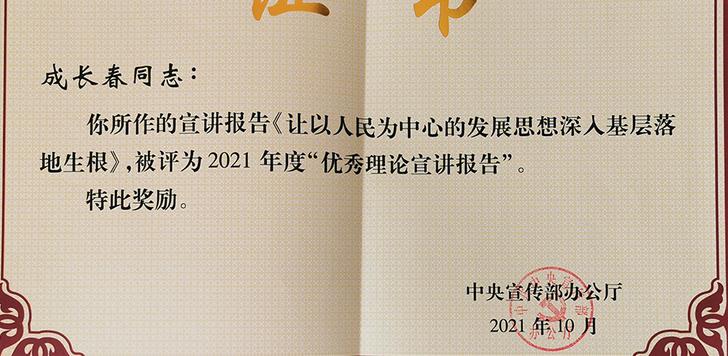 证书
成长春同志：
你所作的宣讲报告《让以人民为中心的发展思想深入基层落
地生根》，被评为2021年度“优秀理论宣讲报告”。
特此奖励。
中央宣传部办公厅
2021年10月